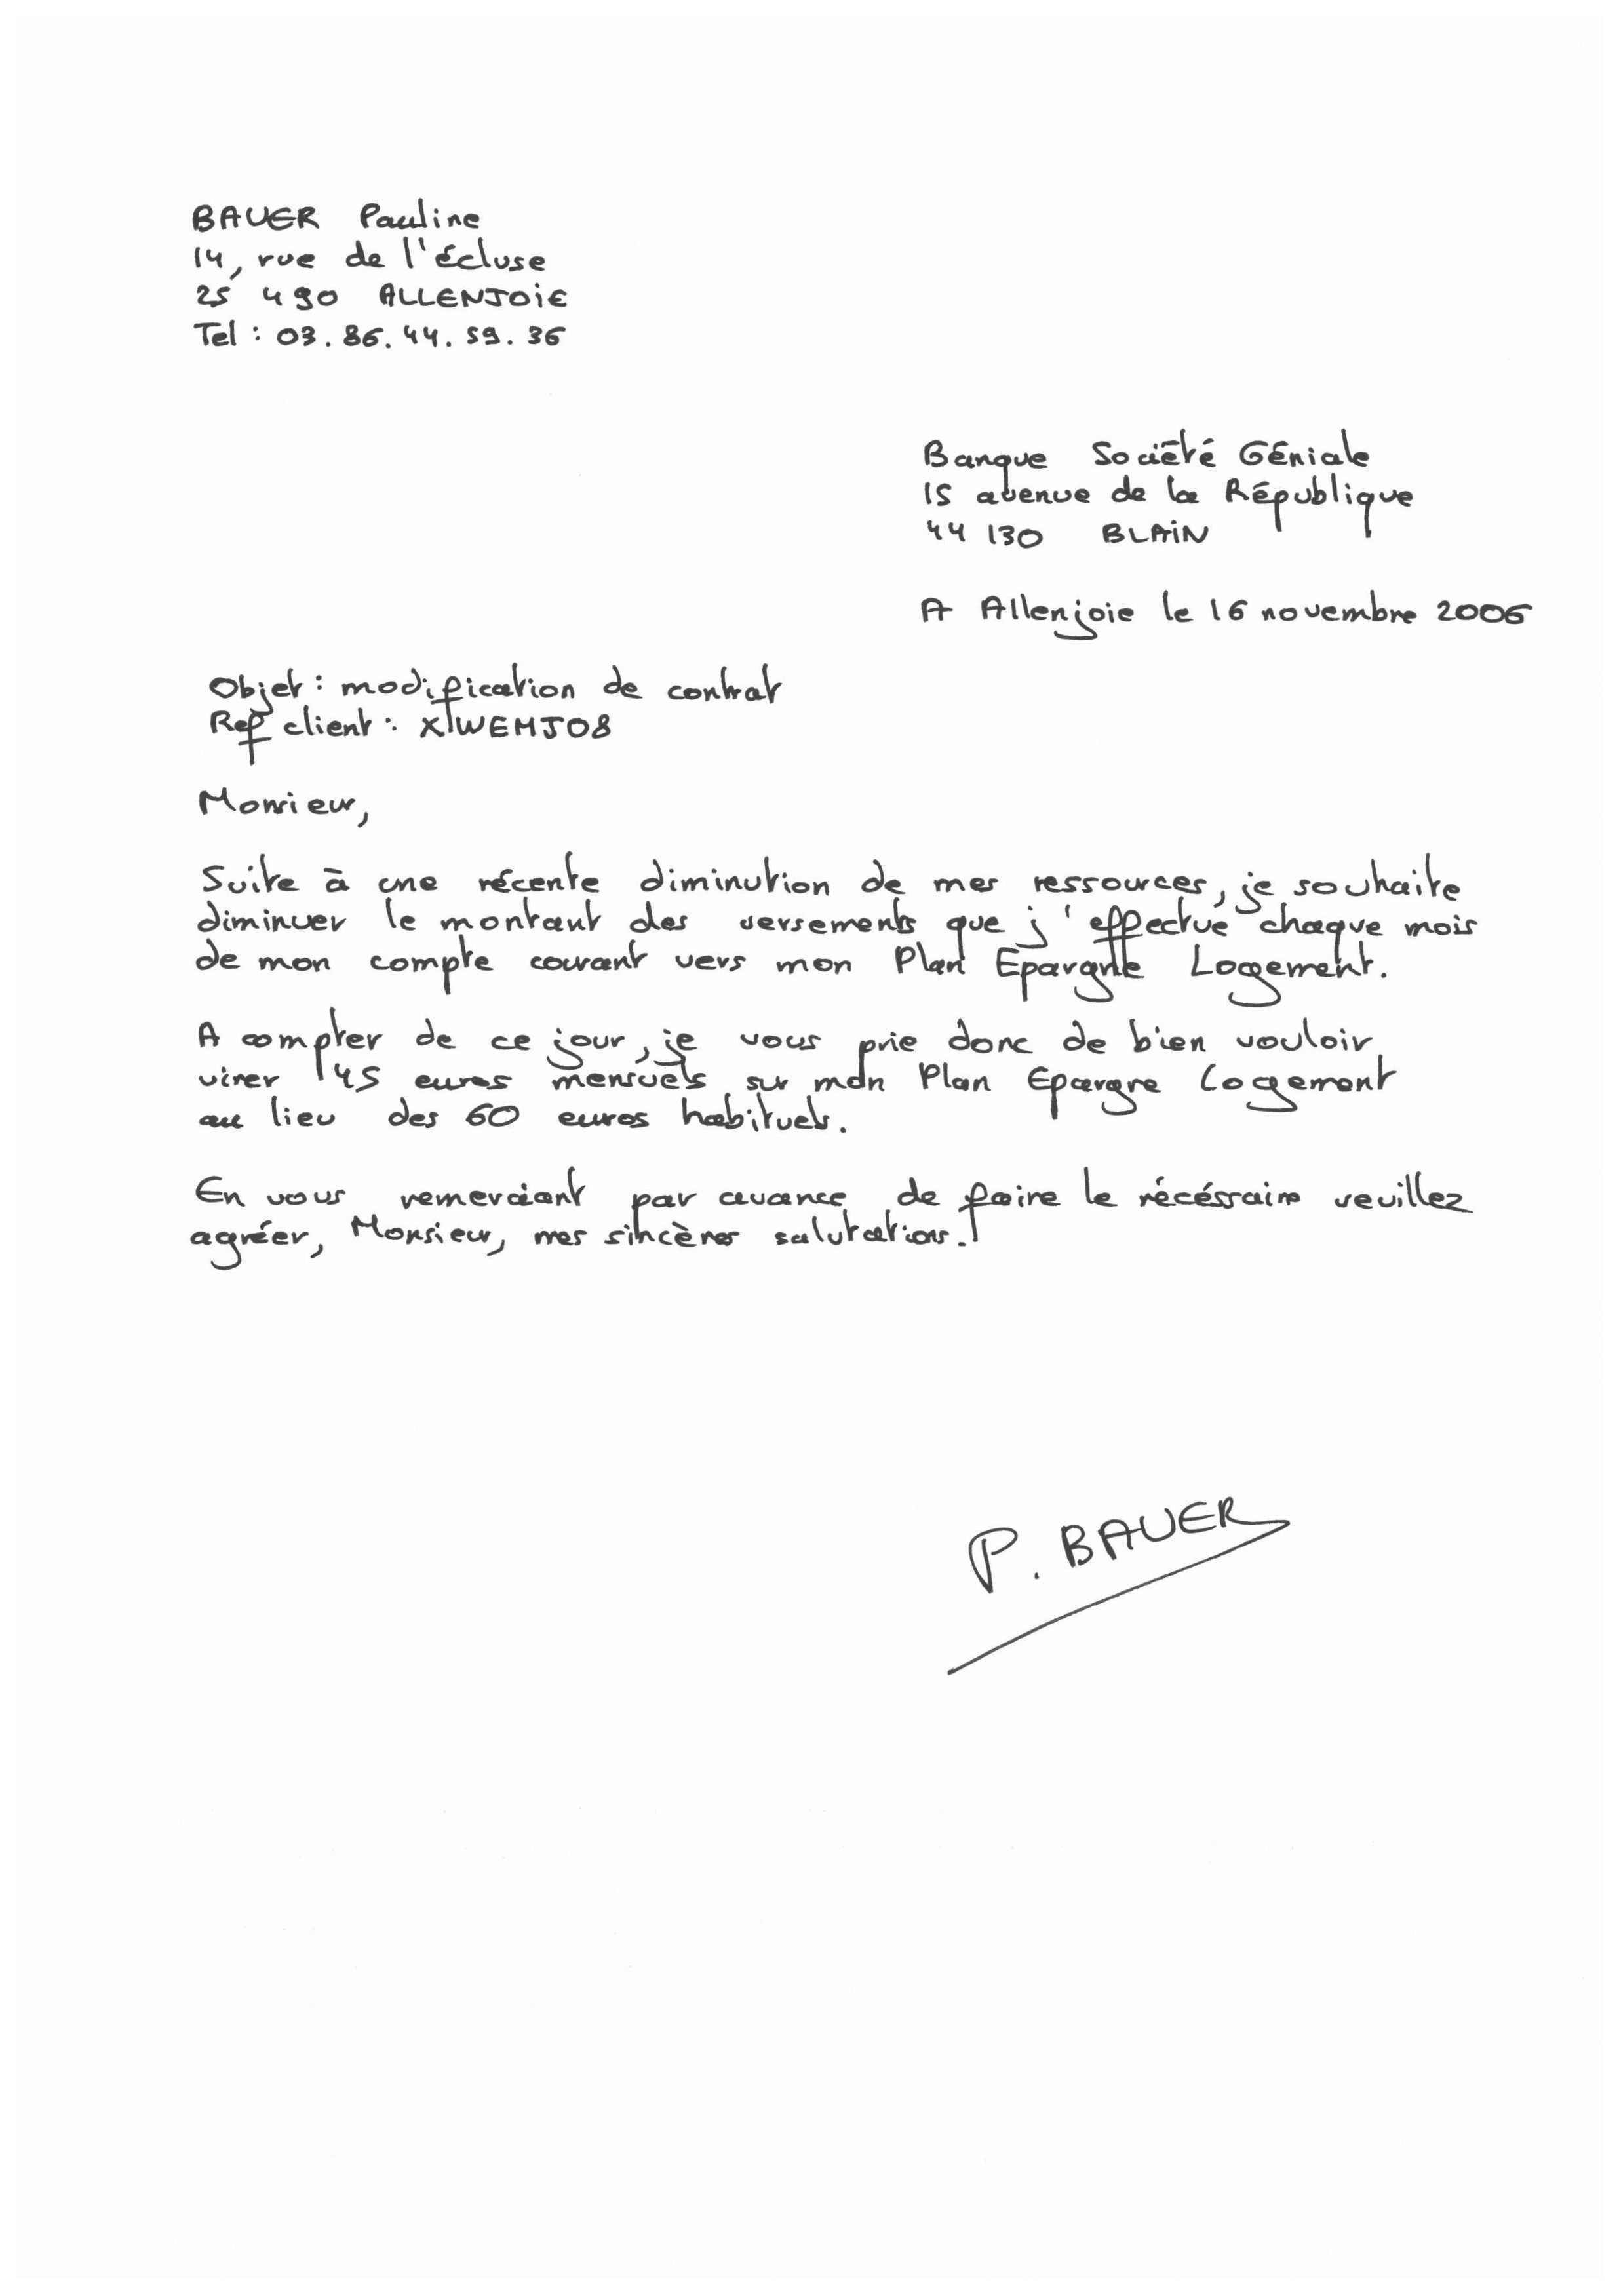 BAUER Pauline
14, rue de l'écluse
25 490 ALLENJOIE
Tel : 03.86.44.59.36
Banque Société Géniale
15 avenue de la République
44 130 BLAIN
A Allenjoie le 16 novembre 2006
Objet : modification de contrat
Ref client : XIWEMJ08
Monsieur,
Suite à une récente diminution de mes ressources, je souhaite
diminuer le montant des versements que j'effectue chaque mois
de mon compte courant vers mon Plan Epargne Logement.
A compter de ce jour, je vous prie donc de bien vouloir
virer 45 euros mensuels sur mon Plan Epargne Logement
au lieu des 60 euros habituels.
En vous remerciant par avance de faire le nécéssaire veuillez
agréer, Monsieur, mes sincères salutations.
P. BAUER